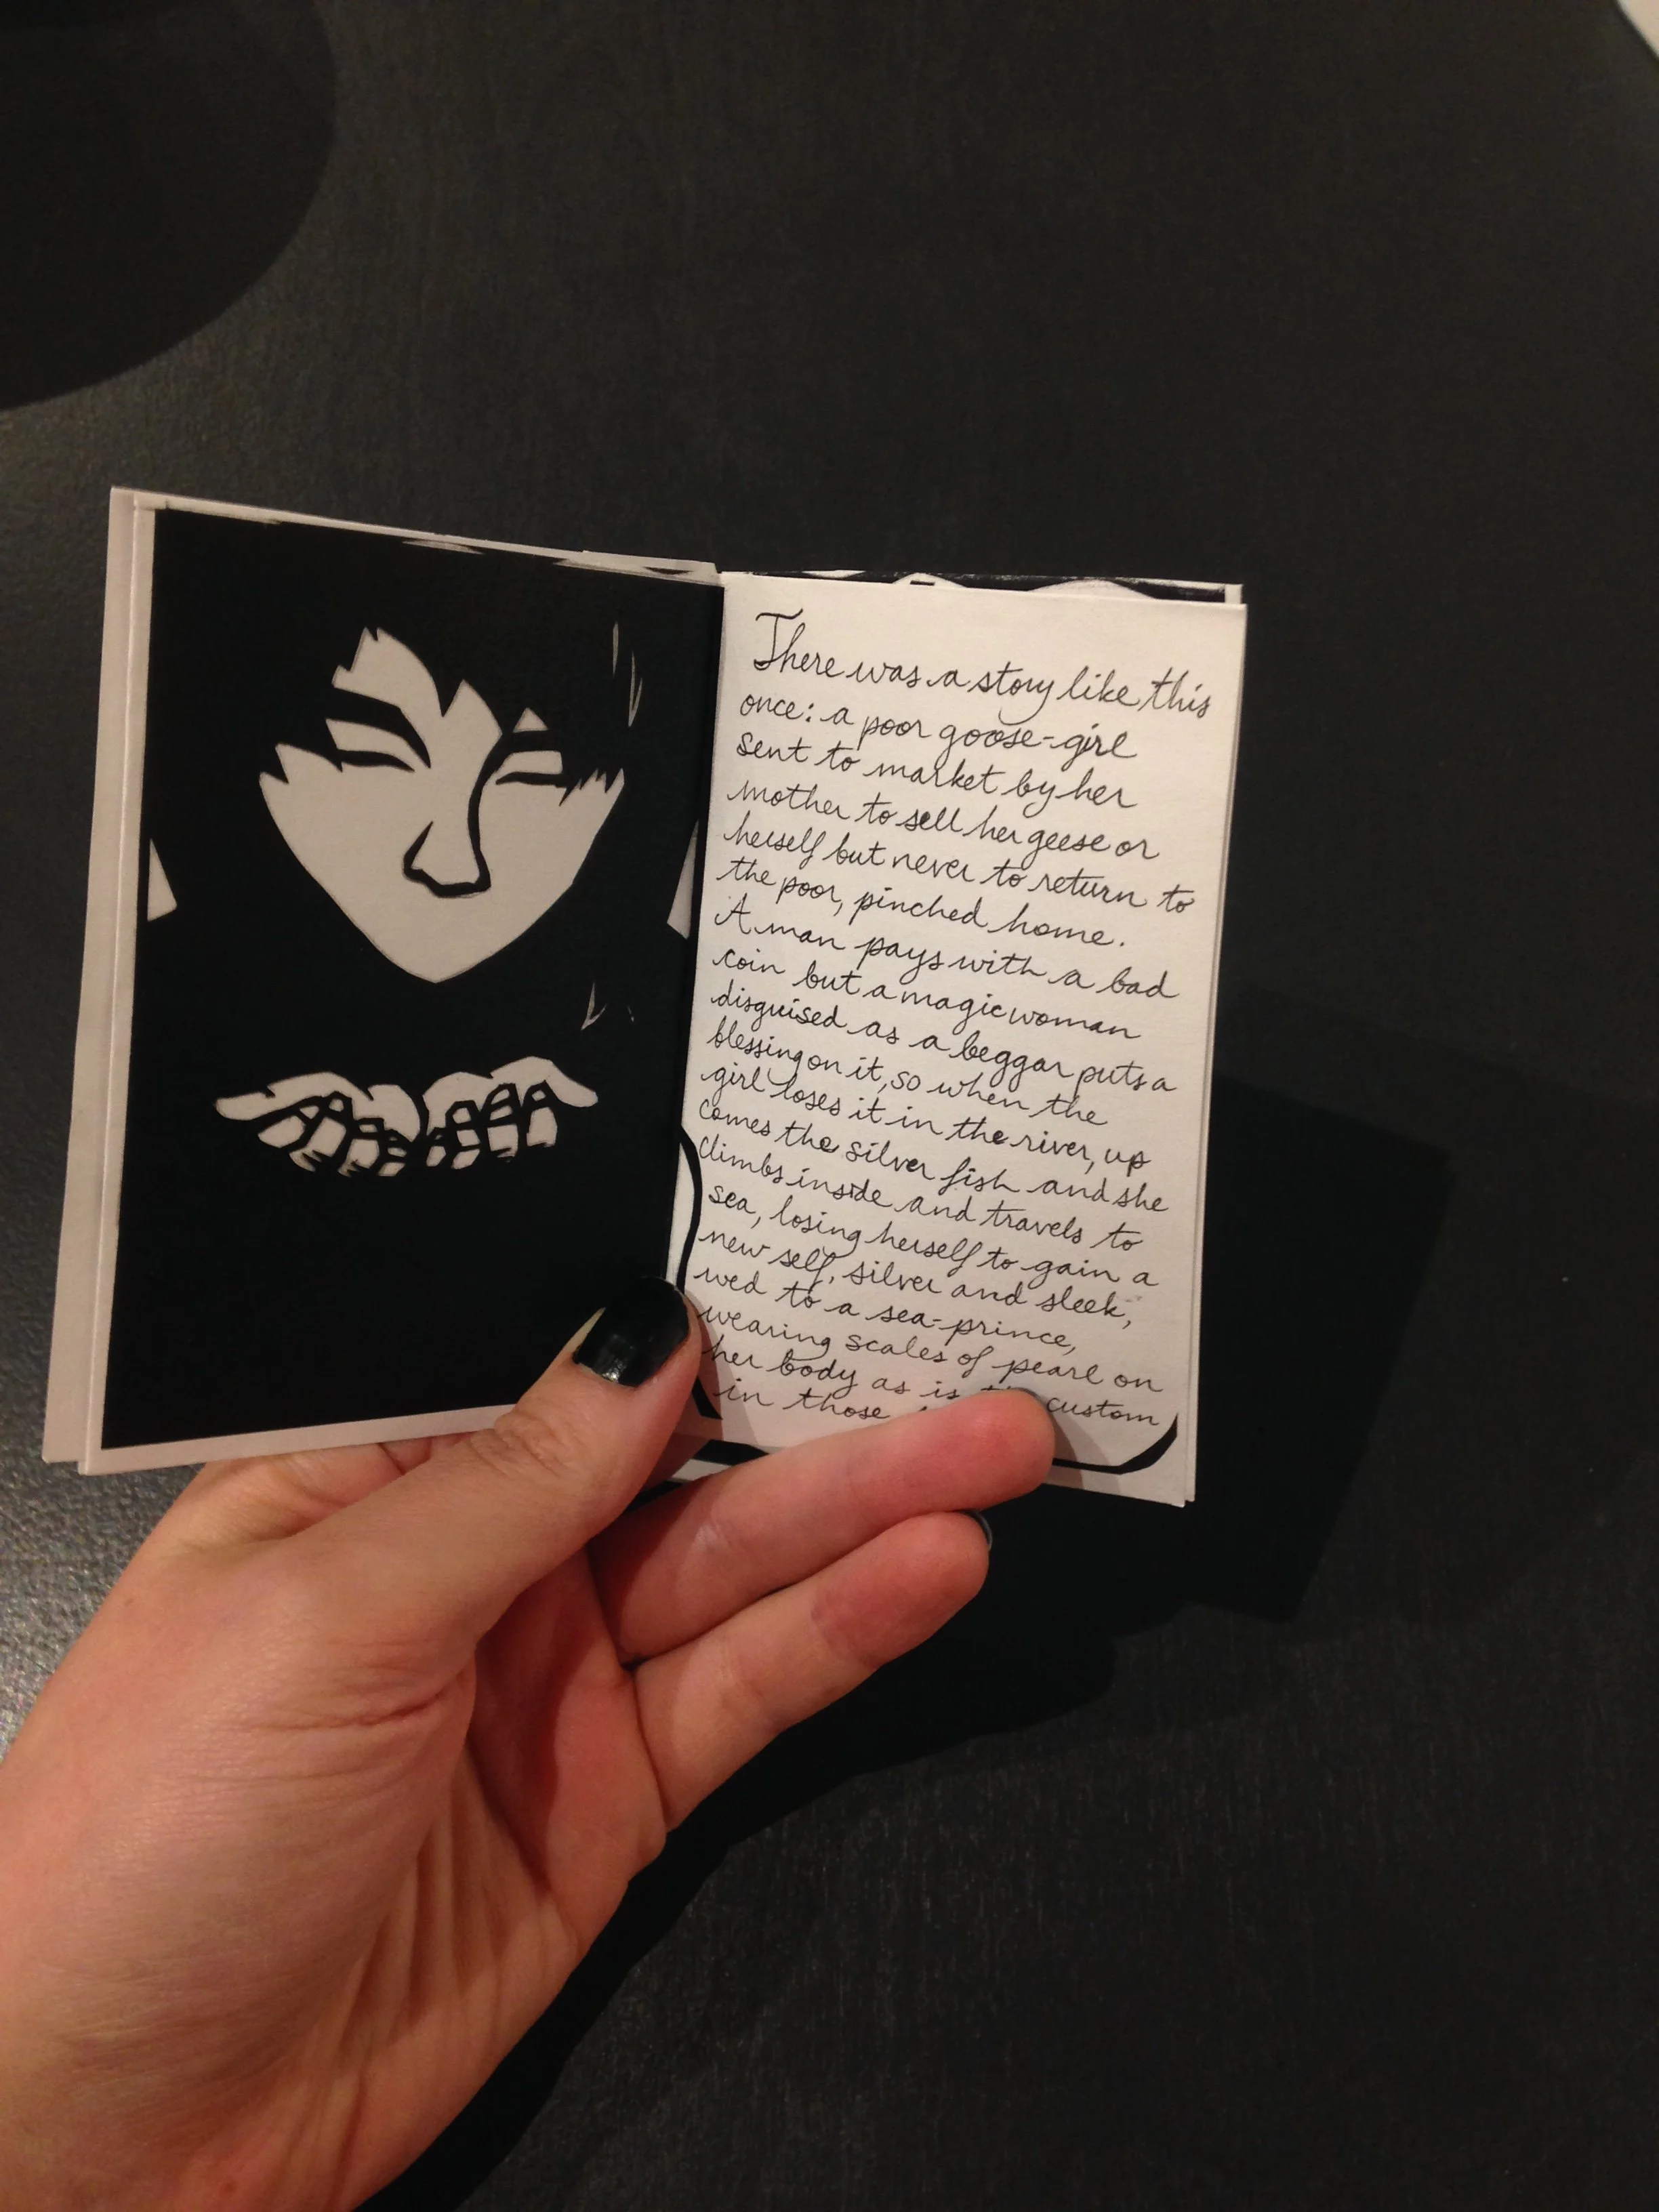 There was a story like this
once: a poor goose-girl
sent to market by her
mother to sell her geese or
herself but never to return to
the poor, pinched home.
A man pays with a bad
coin but a magic woman
disguised as a beggar puts a
blessing on it, so when the
girl loses it in the river, up
comes the silver fish and she
climbs inside and travels to
sea, losing herself to gain a
new self, silver and sleek,
wed to a sea-prince,
wearing scales of pearl on
her body as is custom
in those